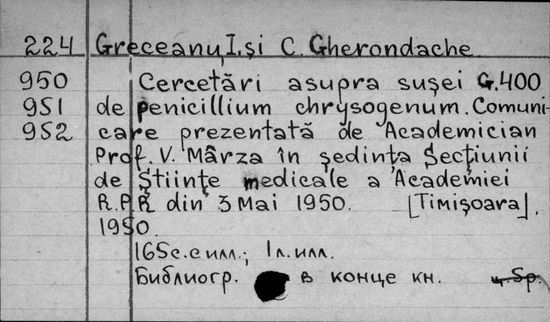 224 Greceanu, I. și C. Gherondache
950 Cercetări asupra sușei G.400
951 de penicillium chrysogenum. Comuni-
952 care prezentată de Academician
Prof. V. Mârza în ședința Secțiunii
de Științe medicale a Academiei
R.P.R din 3 Mai 1950. [Timișoara],
1950.
165c. с илл.; 1л. илл.
Библиогр. в конце кн.